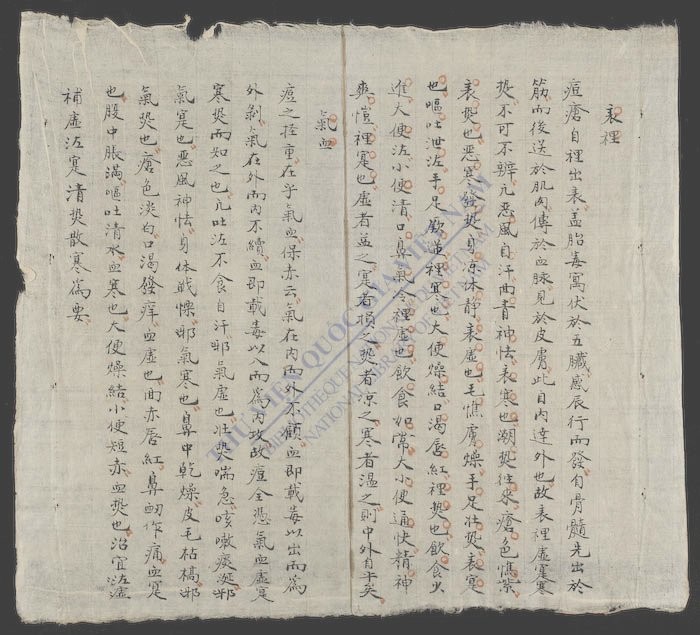 表裡
痘瘡自裡出表盖胎毒寓伏於五臟感辰行而發自骨髓先出於
筋而後送於肌肉傳於血脉見於皮膚此自内達外也故表裡虛寔寒
熱不可不辨凢惡風自汗面青神怯表寒也潮熱往來瘡色憔紫
表熱也惡寒發熱身凉体静表虛也毛憔膚燥手足壮熱表寔
也嘔吐泄泻手足歛裡寒也大便燥結口渴唇紅裡熱也飲食少
進大便泻小便清口鼻氣冷裡虛也飲食如常大小便通快精神
爽裡寔也虛者益之寔者損之熱者凉之寒者温之則中外自平矣
氣血
痘之拴重在乎氣血保赤云氣在内而外不顧血即載毒以出而爲
外剥氣在外而内不續血即載毒以入而爲内攻故痘全憑氣血虛寔
寒熱而知之也凢吐泻不食自汗邪氣虛也壮熱喘急咳嗽痰涎邪
氣寔也惡風神怯身体戰慄邪氣寒也鼻中乾燥皮毛枯槁邪
氣熱也瘡色淡白口渴發痒血虛也面赤唇紅鼻衂作痛血寔
也腹中脹滿嘔吐清水血寒也大便燥結小便短赤血熱也治宜
補虛泻寔清熱散寒爲要
THƯ VIỆN QUỐC GIA VIỆT NAM
BIBLIOTHEQUE NATIONALE DU VIETNAM
NATIONAL LIBRARY OF VIETNAM